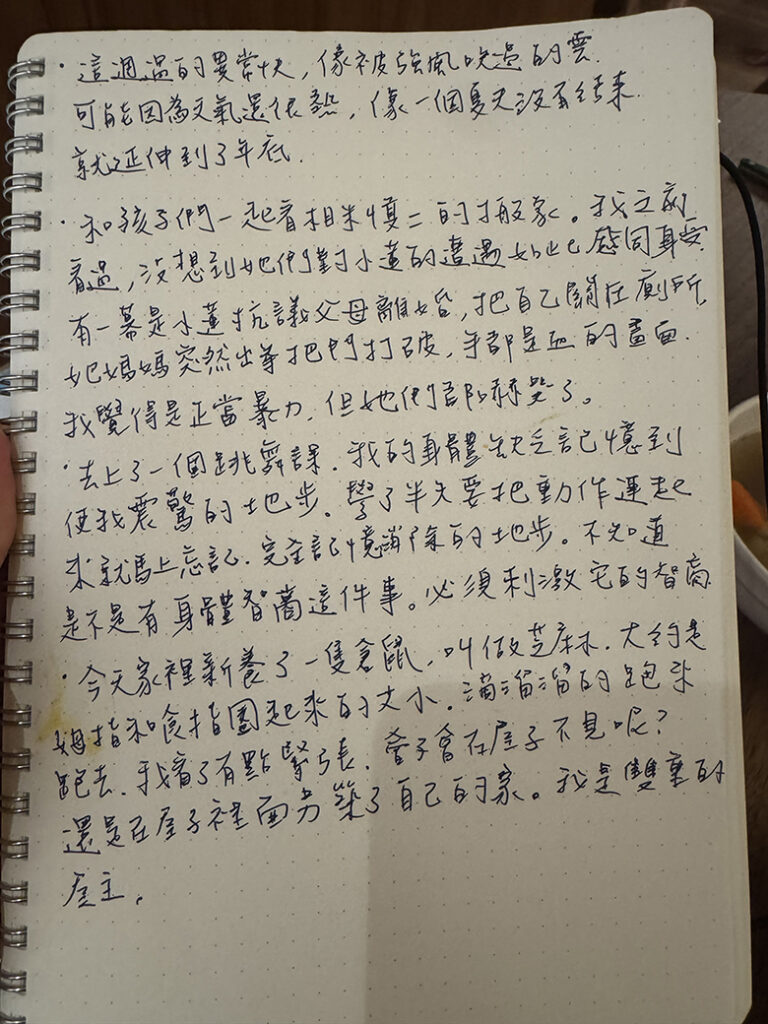 ·這週過的異常快，像被強風吹過的雲.
可能因為天氣還很熱，像一個夏天沒有結束
就延伸到了年底.
·和孩子們一起看相米慎二的搬家。我之前
看過，沒想到她們對小蓮的遭遇如此感同身受
有一幕是小蓮抗議父母離婚，把自己關在廁所，
她媽媽突然出拳把門打破，手都是血的畫面.
我覺得是正當暴力.但她們都嚇哭了。
·去上了一個跳舞課.我的身體缺乏記憶到
使我震驚的地步.學了半天要把動作連起
來就馬上忘記.完全記憶消除的地步。不知道
是不是有身體智商這件事。必須刺激它的智商.
·今天家裡新養了一隻倉鼠.叫做芝麻.大約是
姆指和食指圈起來的大小.滴溜溜的跑來
跑去.我看了有點緊張.會不會在屋子不見呢？
還是在屋子裡面另築了自己的家。我是雙重的
屋主。